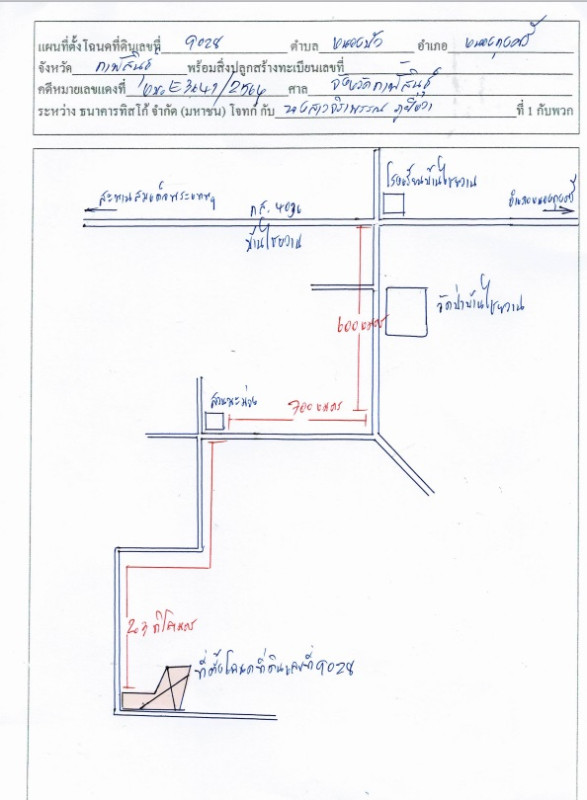 แผนที่ตั้งโฉนดที่ดินเลขที่ 9028 ตำบล หนองบัว อำเภอ หนองกุงศรี
จังหวัด กาฬสินธุ์ พร้อมสิ่งปลูกสร้างทะเบียนเลขที่
คดีหมายเลขแดงที่ ศาล จังหวัดกาฬสินธุ์
ระหว่าง ธนาคารทิสโก้ จำกัด (มหาชน) โจทก์ กับ นางสาวจิราพรรณ ที่ 1 กับพวก
โรงเรียนบ้านไชยวาน
สะพานสมเด็จพระเทพฯ
กส. 4036
อำเภอหนองกุงศรี
บ้านไชยวาน
วัดป่าบ้านไชยวาน
600 เมตร
700 เมตร
2.3 กิโลเมตร
ที่ตั้งโฉนดที่ดินเลขที่ 9028